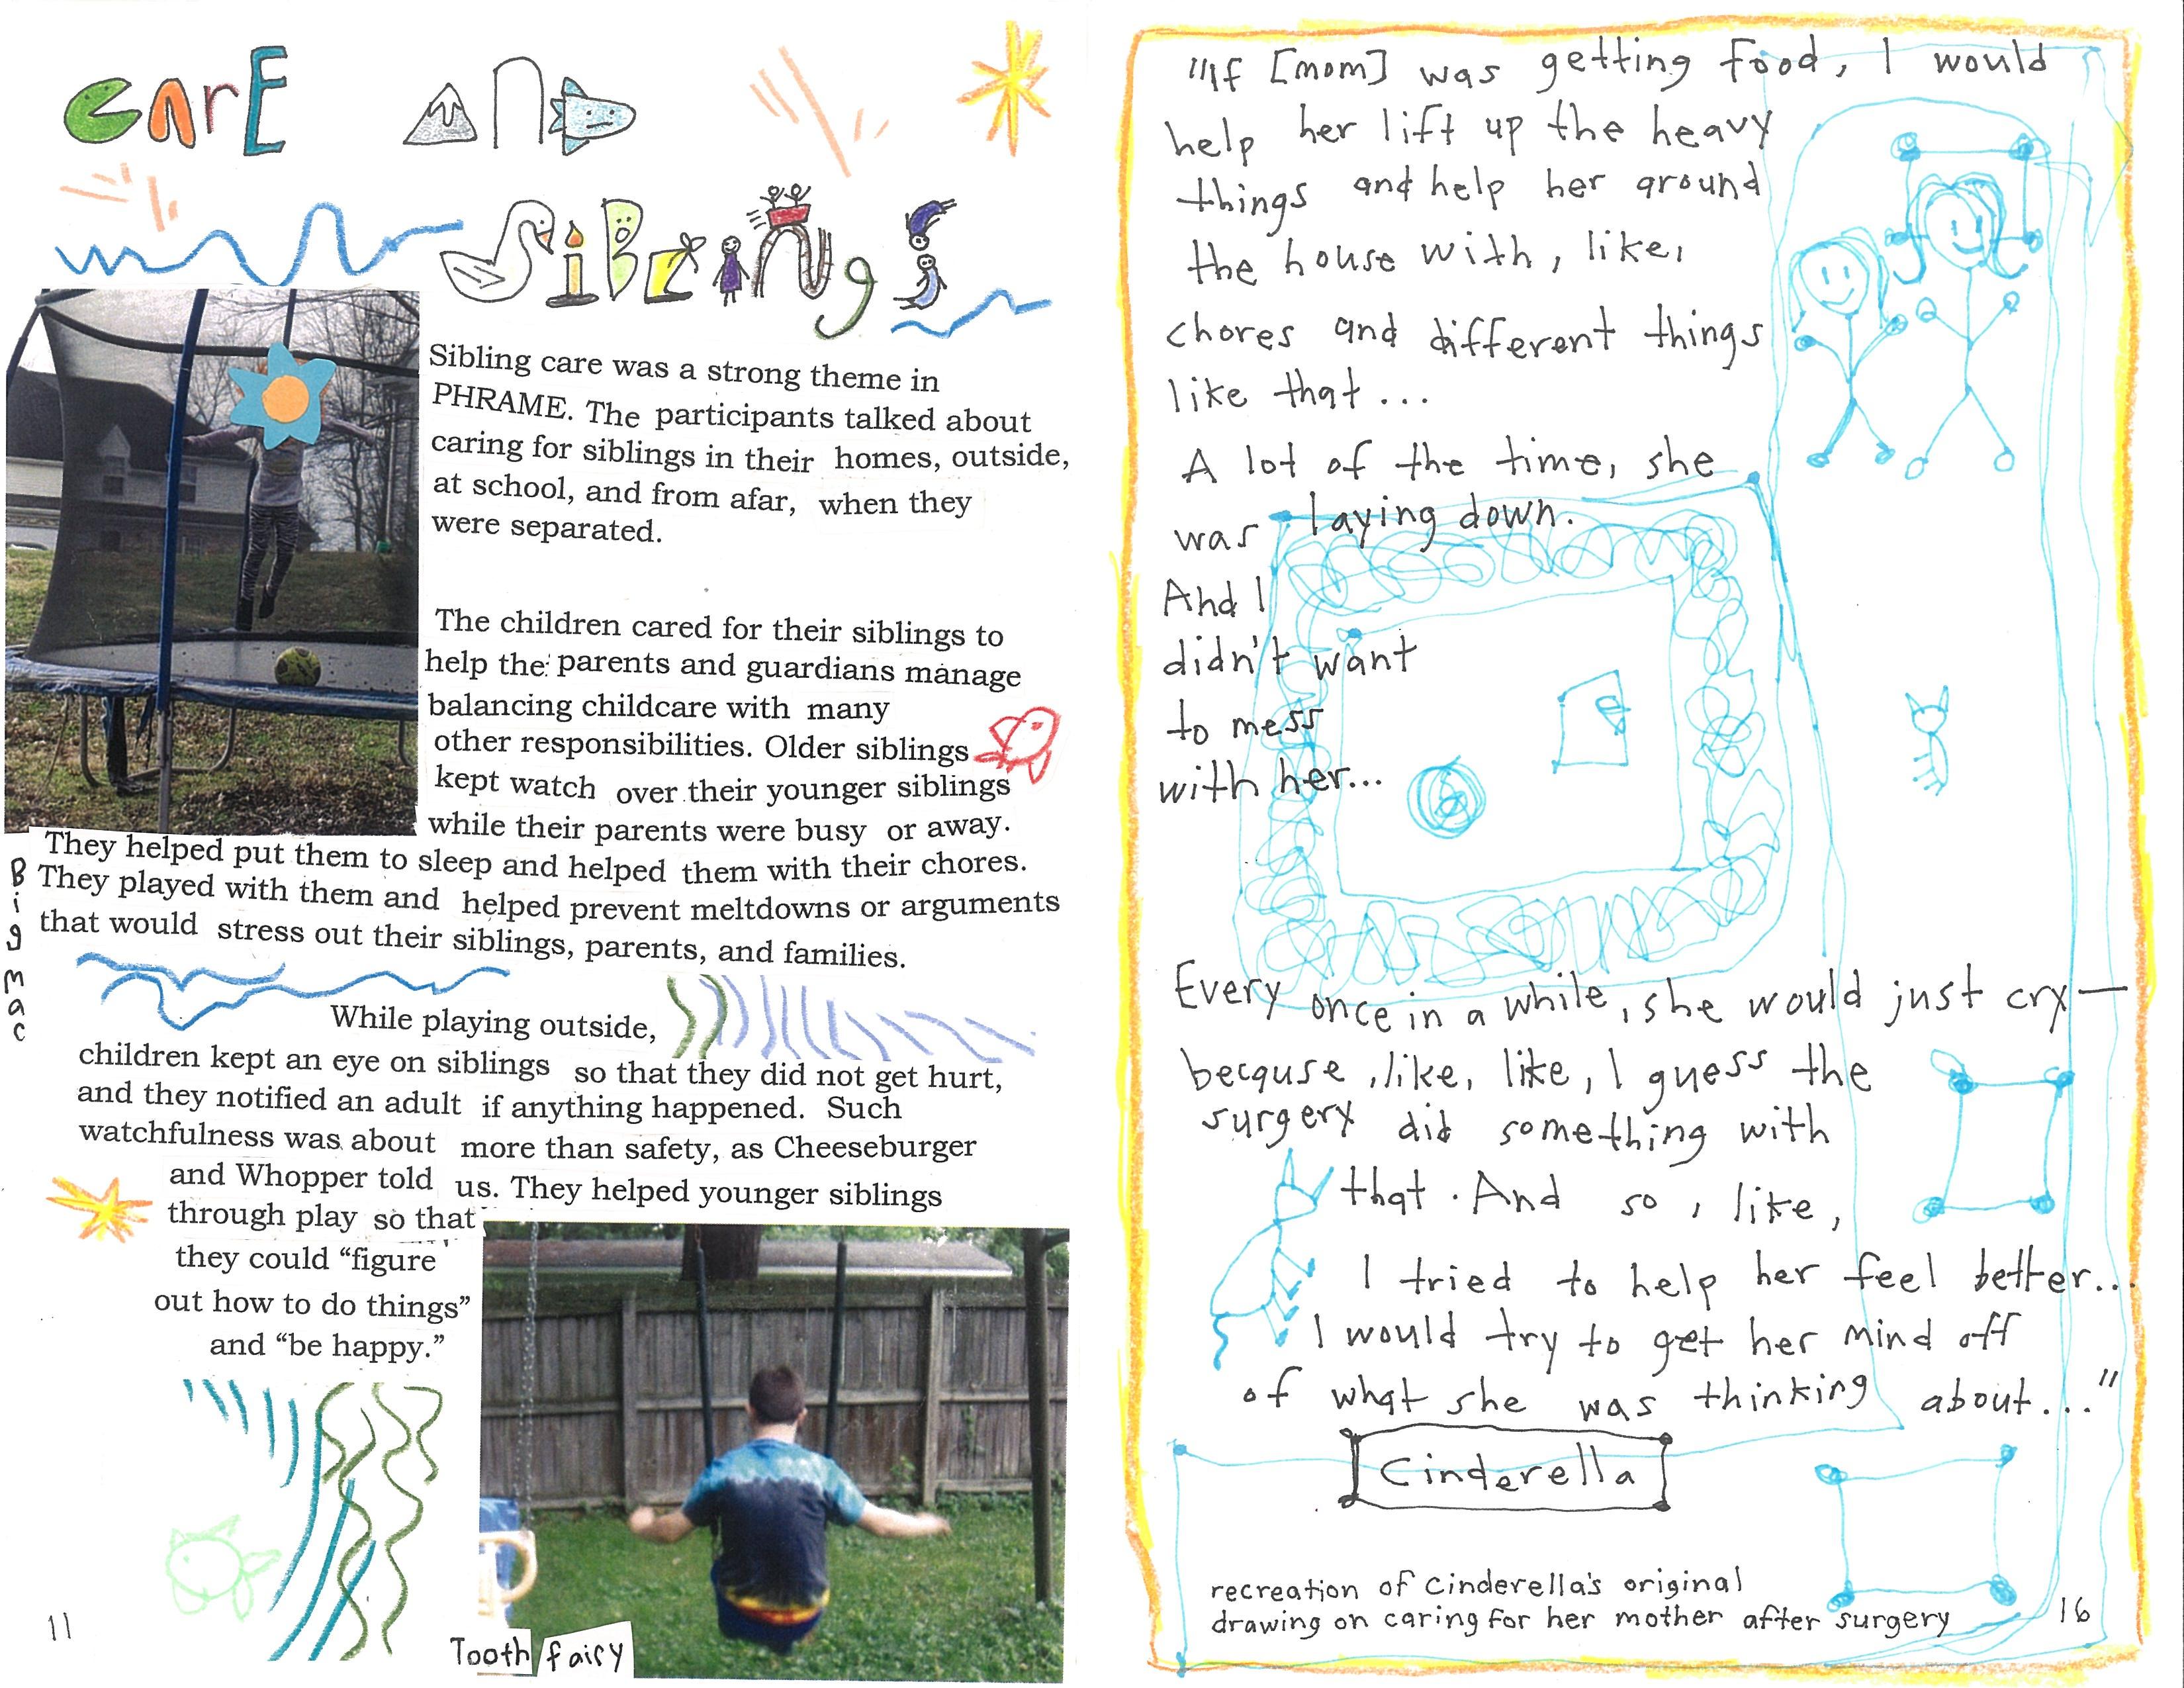 CArE AND
SiBLiNgS
Sibling care was a strong theme in
PHRAME. The participants talked about
caring for siblings in their homes, outside,
at school, and from afar, when they
were separated.
The children cared for their siblings to
help the parents and guardians manage
balancing childcare with many
other responsibilities. Older siblings
kept watch over their younger siblings
while their parents were busy or away.
They helped put them to sleep and helped them with their chores.
They played with them and helped prevent meltdowns or arguments
that would stress out their siblings, parents, and families.
Big mac
While playing outside,
children kept an eye on siblings so that they did not get hurt,
and they notified an adult if anything happened. Such
watchfulness was about more than safety, as Cheeseburger
and Whopper told us. They helped younger siblings
through play so that
they could “figure
out how to do things”
and “be happy.”
Tooth fairy
11
"If [mom] was getting food, I would
help her lift up the heavy
things and help her around
the house with, like,
chores and different things
like that...
A lot of the time, she
was laying down.
And I
didn't want
to mess
with her...
Every once in a while, she would just cry—
because, like, like, I guess the
surgery did something with
that. And so, like,
I tried to help her feel better...
I would try to get her mind off
of what she was thinking about..."
Cinderella
recreation of Cinderella's original
drawing on caring for her mother after surgery
16